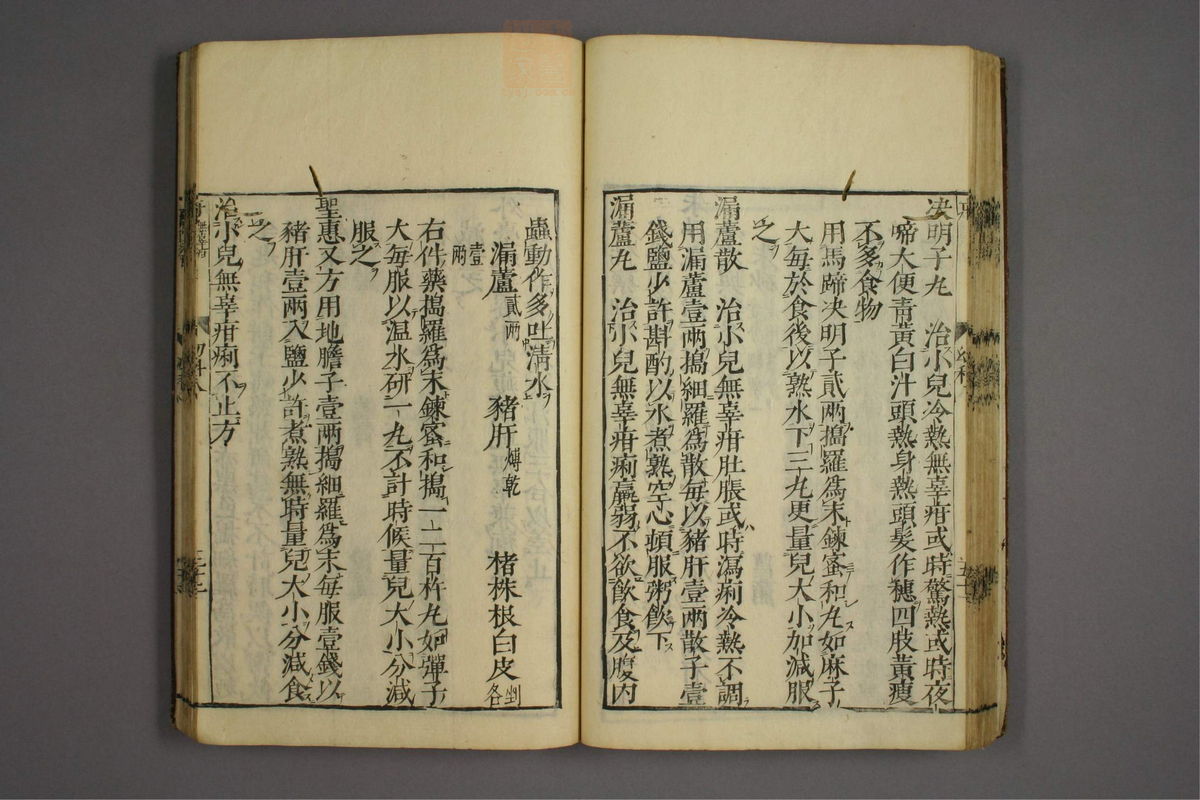 决明子丸　治小兒冷熱無辜疳或時驚熱或時夜
啼大便青黃白汁頭熱身熱頭髮作穗四肢黃瘦
不多食物
用馬蹄決明子貳兩搗羅爲末鍊蜜和丸如麻子
大每於食後以熟水下三丸更量兒大小加減服
之
漏蘆散　治小兒無辜疳肚脹或時瀉痢冷熱不調
用漏蘆壹兩搗細羅爲散每以猪肝壹兩散子壹
錢鹽少許斟酌以水煮熟空心頓服粥飲下
漏蘆丸　治小兒無辜疳痢羸弱不欲飲食及腹内
蟲動作多吐淸水
漏蘆貳兩　豬肝煿乾　楮株根白皮剉各
壹兩
右件藥搗羅爲末鍊蜜和搗一二百杵丸如彈子
大每服以温水研一丸不計時候量兒大小分減
服之
聖惠又方用地膽子壹兩搗細羅爲末每服壹錢以
豬肝壹兩入鹽少許煮熟無時量兒大小分減食
之
治小兒無辜疳痢不止方